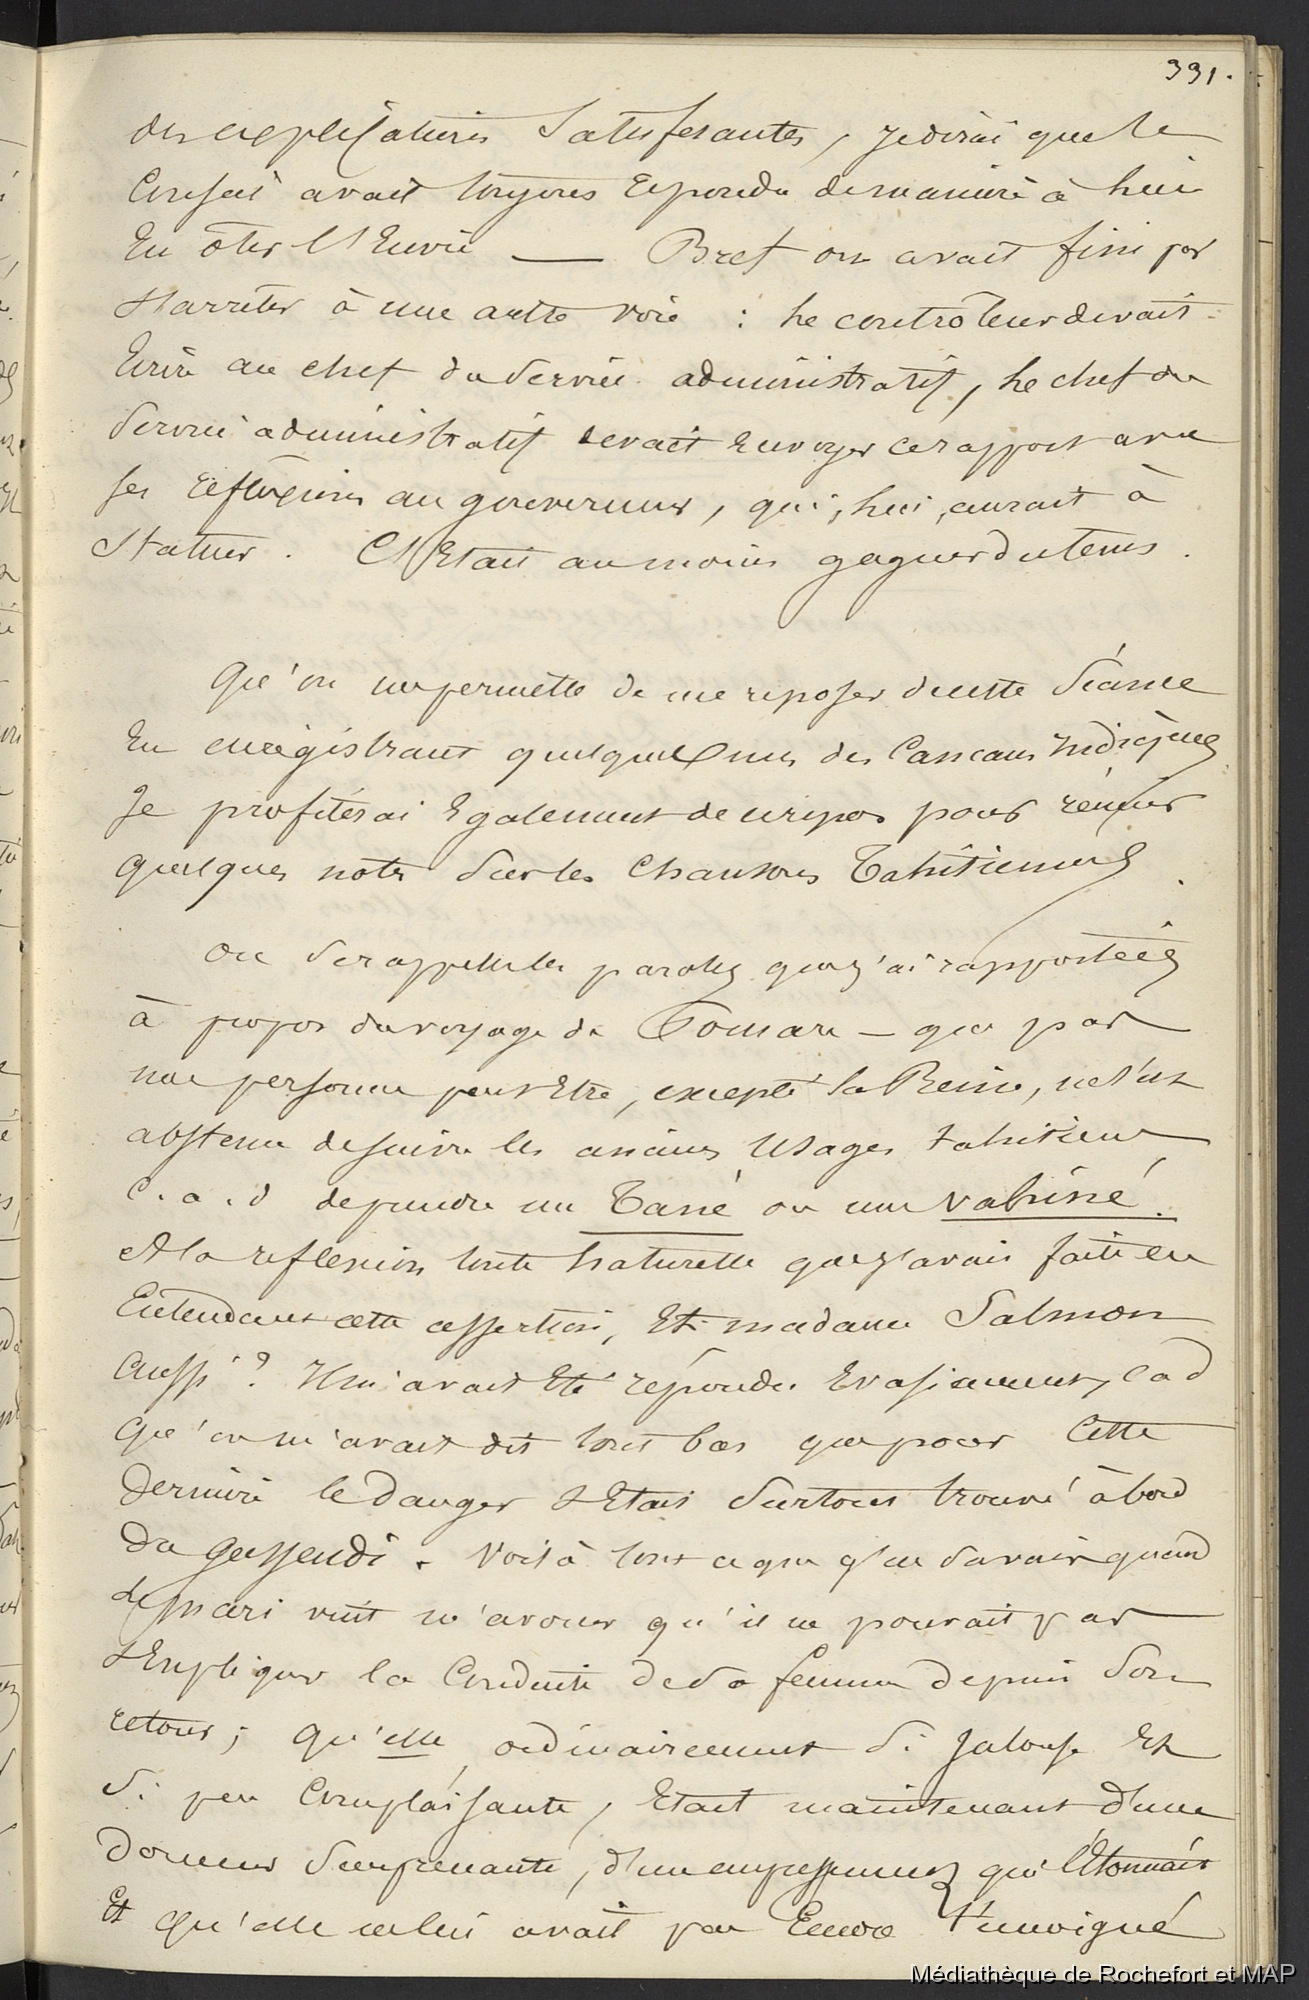 331.
des explications satisfesantes, je dirai que le
Conseil avait toujours répondu de manière à lui
En ôter l'Envie — Bref on avait fini par
s'arrêter à une autre voie : le contrôleur devait
Ecrire au chef du service administratif, le chef du
Service administratif devait Envoyer ce rapport avec
ses réflexions au gouverneur, qui, lui, aurait à
Statuer. C'Etait au moins gagner du tems.
Qu'on me permette de me reposer de cette Séance
En enregistrant quelques unes des Cancans Indigènes
Je profiterai Egalement de ce repos pour réunir
quelques notes sur les Chansons Tahitiennes.
On se rappelle les paroles que j'ai rapportées
à propos du voyage de Pomare — que pas
une personne peut Etre, excepté la Reine, ne s'est
abstenu de suivre les anciens Usages tahitiens
C. a. d de prendre un Tané ou une vahiné.
A la réflexion toute Naturelle que j'avais faite en
Entendant cette assertion, Et madame Salmon
Aussi ? Il m'avait Eté répondu Evasivement, C a d
qu'on m'avait dit tout bas que pour Cette
Dernière le danger s'Etait Surtout trouvé à bord
Du Gassendi. Voilà tout ce que j'en savais quand
le mari vint m'avouer qu'il ne pouvait pas
s'Expliquer la Conduite de sa femme depuis Son
retour ; qu'elle ordinairement si Jalouse Et
Si peu Complaisante, Etait maintenant d'une
Douceur Surprenante, d'un empressement qui l'Etonnait
Et qu'elle ne lui avait pas Encore témoigné
Médiathèque de Rochefort et MAP